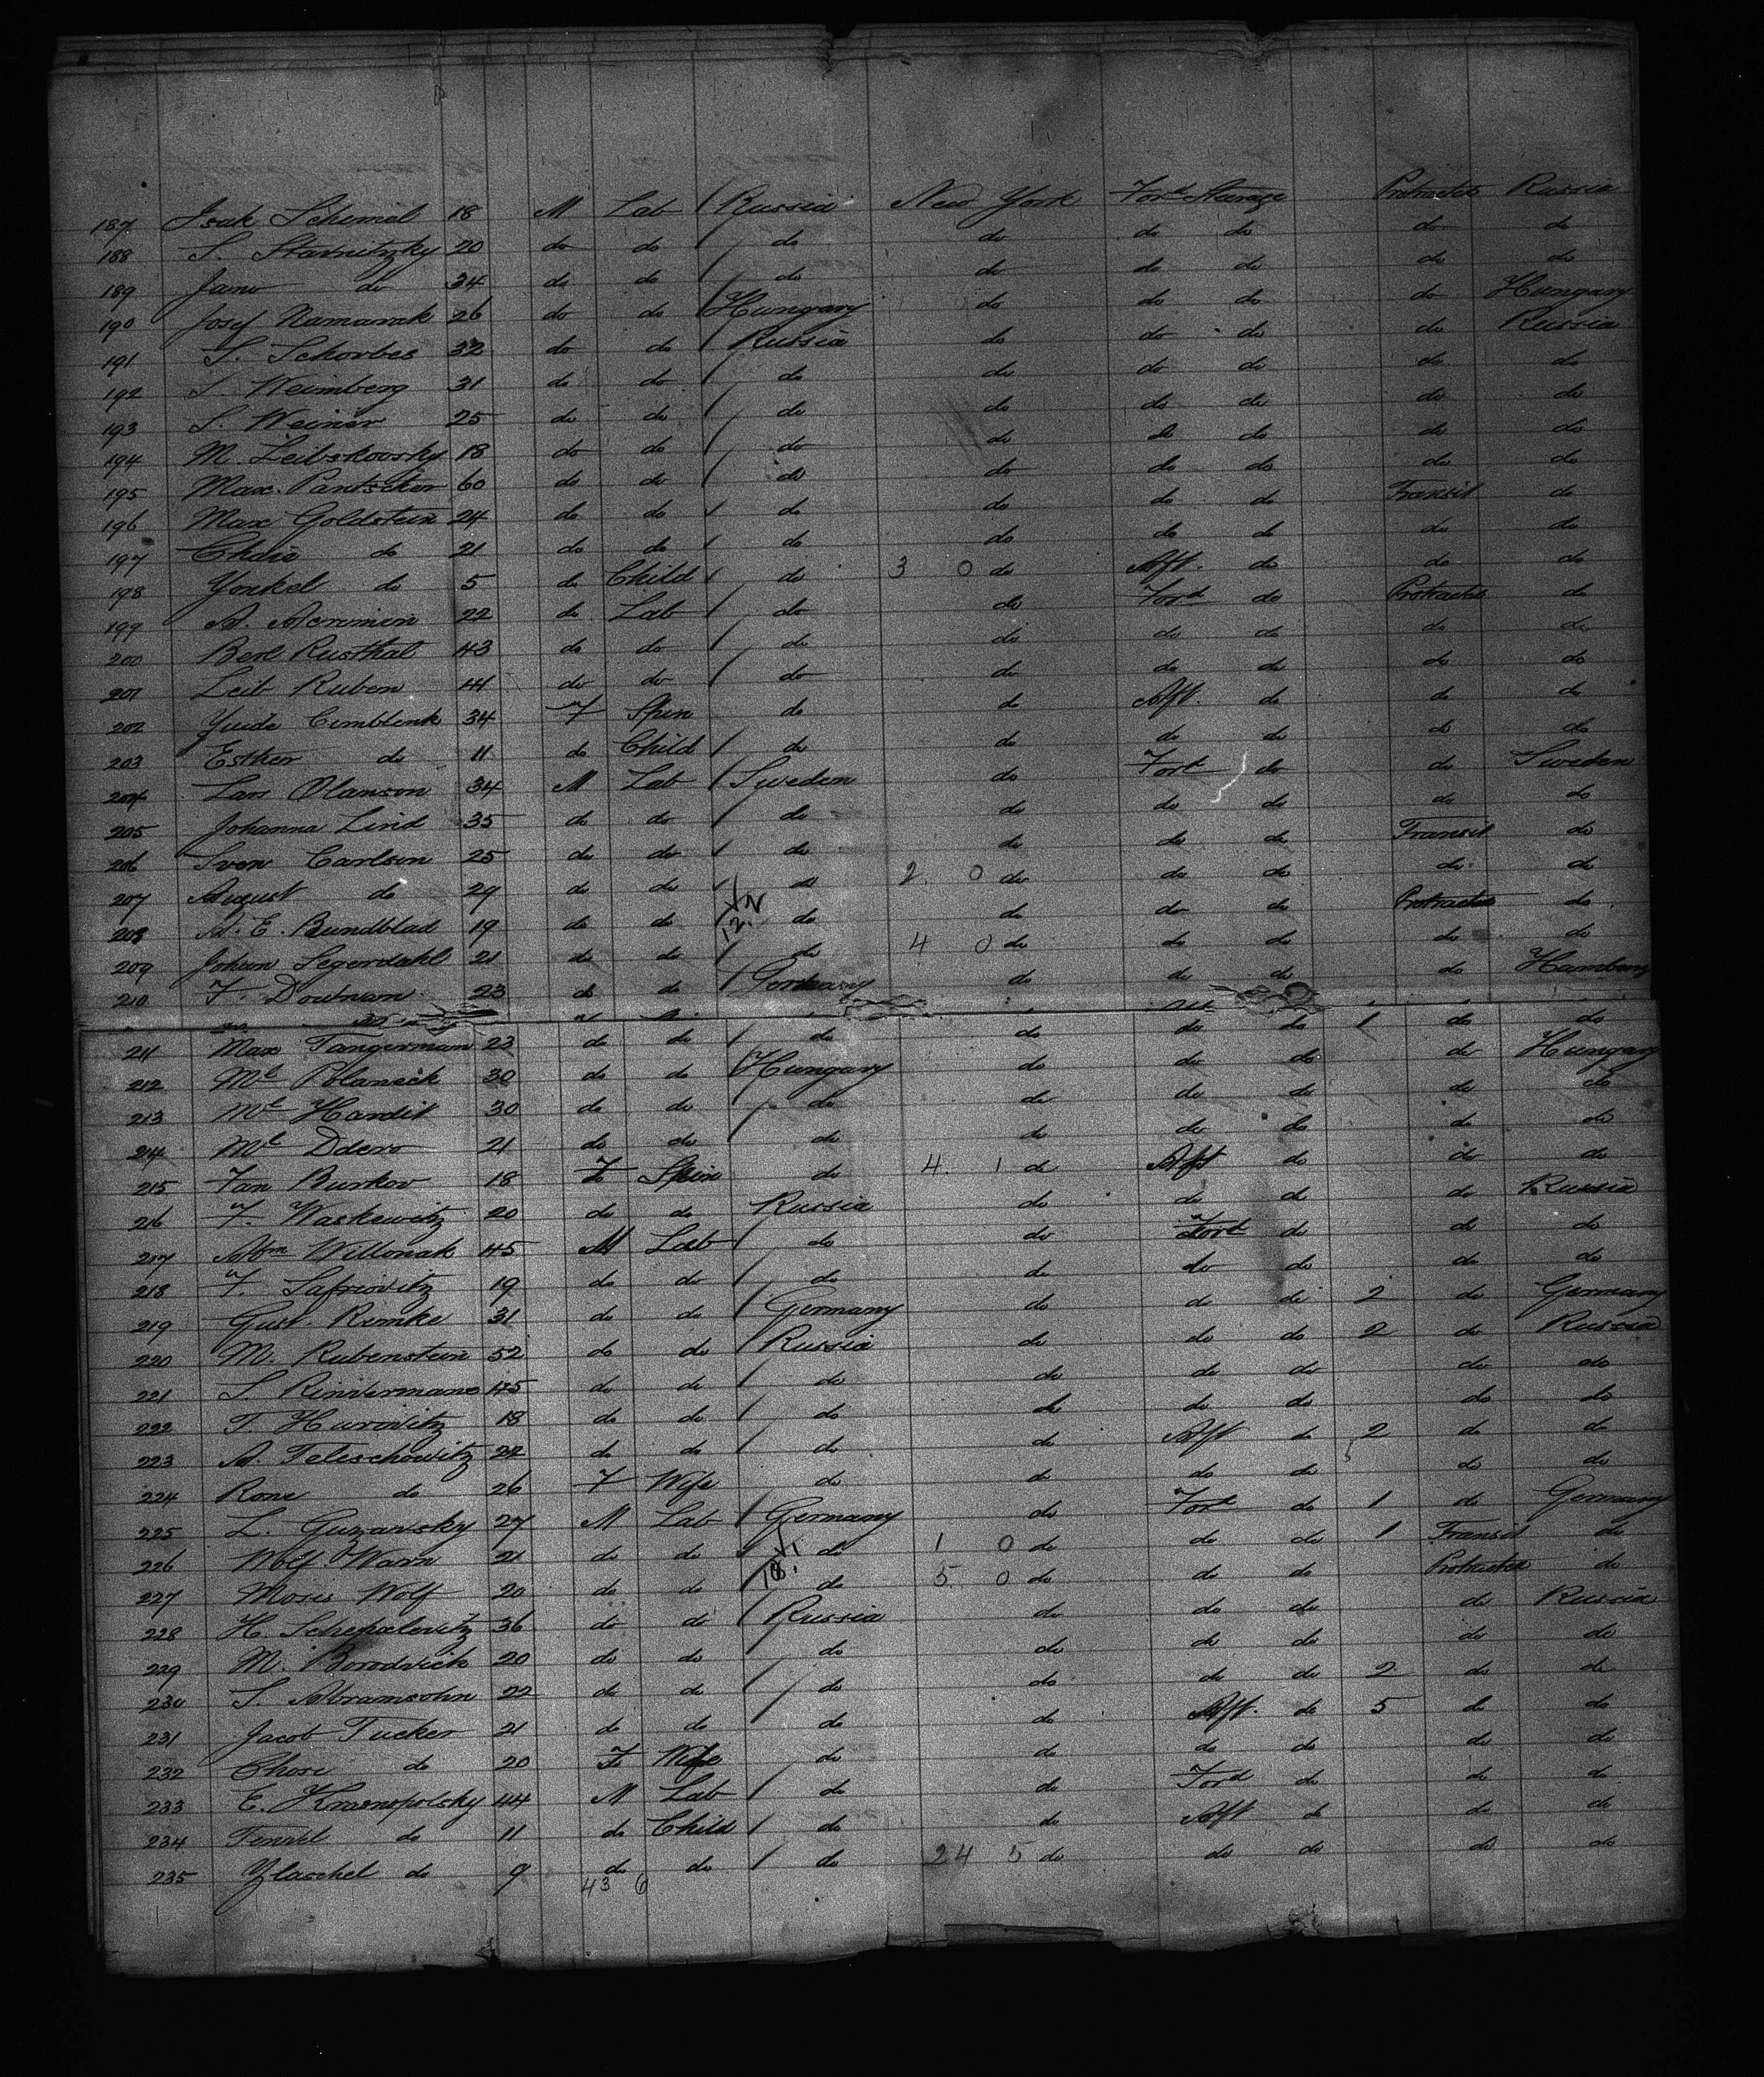 187 Isak Schimel 18 M Lab / Russia New York Ford Steerage Protracted Russia
188 S. Starnitzky 20 do do / do do do do do do
189 Jano do 34 do do / do do do do do do
190 Josef Namarak 26 do do / Hungary do do do do Hungary
191 S. Schorbes 32 do do / Russia do do do do Russia
192 S. Weimberg 31 do do / do do do do do do
193 S. Weiner 25 do do / do do do do do do
194 M. Leibskowsky 18 do do / do do do do do do
195 Max. Pantscher 60 do do / do do do do do do
196 Max Goldstein 24 do do / do do do do Transit do
197 Chaie do 21 do do / do do do do do do
198 Yonkel do 5 do Child / do 3 0 do Aft. do do do
199 A. Acronimin 22 do Lab / do do Ford do Protracted do
200 Berl Rusthal 43 do do / do do do do do do
201 Leib Ruben 41 do do / do do do do do do
202 Yuida Cemblink 34 F Spin do do Aft. do do do
203 Esther do 11 do Child / do do do do do do
204 Lars Olanson 34 M Lab / Sweden do Ford do do Sweden
205 Johanna Lind 35 do do / do do do do do do
206 Sven Carlson 25 do do / do do do do Transit do
207 August do 29 do do / do 2. 0 do do do do do
208 A. E. Bundblad 19 do do 12. do do do do Protracted do
209 Johan Segerdahl 21 do do / do 4 0 do do do do do
210 F. Doutman 23 do do / Germany do do do do Hamburg
211 Max Tangerman 23 do do / do do do do 1 do do
212 Ml Polansck 30 do do / Hungary do do do do Hungary
213 Ml Hardit 30 do do / do do do do do do
214 Ml Ddero 21 do do / do do do do do do
215 Fan Burkov 18 F Spin do 4. 1 do Aft do do do
216 F. Waskewitz 20 do do Russia do do do do Russia
217 Abm Willonak 45 M Lab / do do Ford do do do
218 F. Safriovitz 19 do do / do do do do do do
219 Gust. Rimke 31 do do / Germany do do do 2 do Germany
220 M. Rubenstein 52 do do / Russia do do do 2 do Russia
221 S. Rindermans 45 do do / do do do do do do
222 T. Hurovitz 18 do do / do do do do do do
223 A. Teleschowitz 22 do do / do do Aft do 2 do do
224 Rone do 26 F Wife do do do do do do
225 L. Guzarsky 27 M Lab / Germany do Ford do 1 do Germany
226 Wolf Warn 21 do do / do 1 0 do do do 1 Transit do
227 Moses Wolf 20 do do 18. do 5. 0 do do do Protracted do
228 H. Schepelevitz 36 do do / Russia do do do do Russia
229 M. Borodvick 20 do do / do do do do do do
230 S. Abramsohn 22 do do / do do do do 2 do do
231 Jacob Tucker 21 do do do do Aft. do 5 do do
232 Chosi do 20 F Wife do do do do do do
233 E. Krasnopolsky 44 M Lab / do do Ford do do do
234 do 11 do Child / do do Aft do do do
235 Ylaschel do 9 do do / do 24 5 do do do do do
43 6